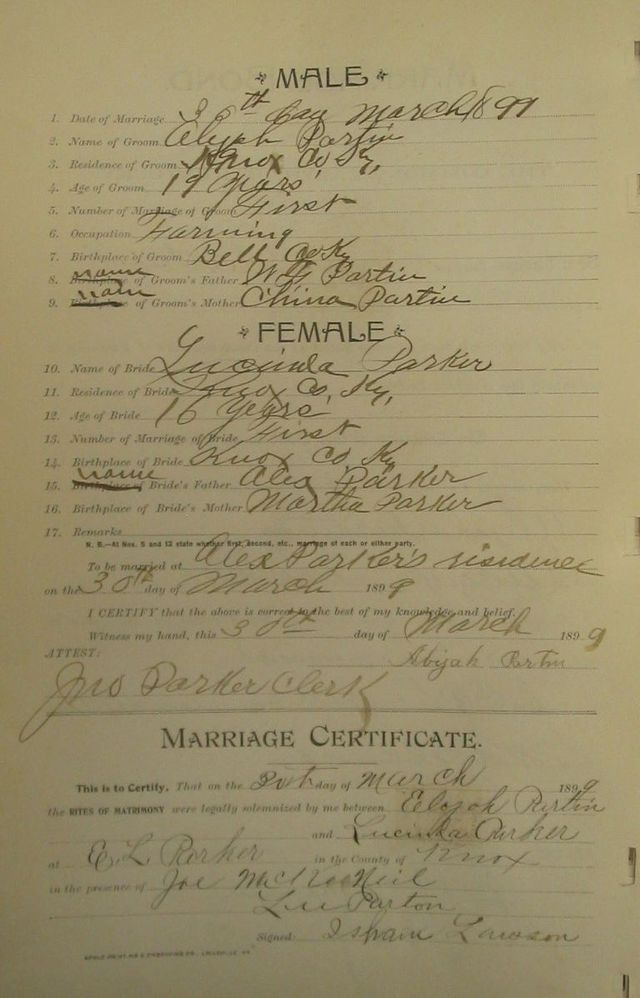 MALE
1. Date of Marriage 30th day March 1899
2. Name of Groom Elijah Partin
3. Residence of Groom Knox Co Ky,
4. Age of Groom 19 Years
5. Number of Marriage of Groom First
6. Occupation Farming
7. Birthplace of Groom Bell Co Ky
8. name of Groom's Father Partin
9. name of Groom's Mother China Partin
FEMALE
10. Name of Bride Lucinda Parker
11. Residence of Bride Knox Co, Ky,
12. Age of Bride 16 Years
13. Number of Marriage of Bride First
14. Birthplace of Bride Knox Co Ky
15. name of Bride's Father Alex Parker
16. Birthplace of Bride's Mother Martha Parker
17. Remarks
N. B.—At Nos. 5 and 13 state whether first, second, etc., marriage of each or either party.
To be married at Alex Parker's residence
on the 30th day of March 1899
I CERTIFY that the above is correct to the best of my knowledge and belief.
Witness my hand, this 30th day of March 1899
ATTEST: Abijah Partin
Jno Parker Clerk
MARRIAGE CERTIFICATE.
This is to Certify, That on the day of March 1899
the RITES OF MATRIMONY were legally solemnized by me between Elijah Partin
and Lucinda Parker
at E L Parker in the County of Knox
in the presence of Joe
Parton
Signed Isham Lawson